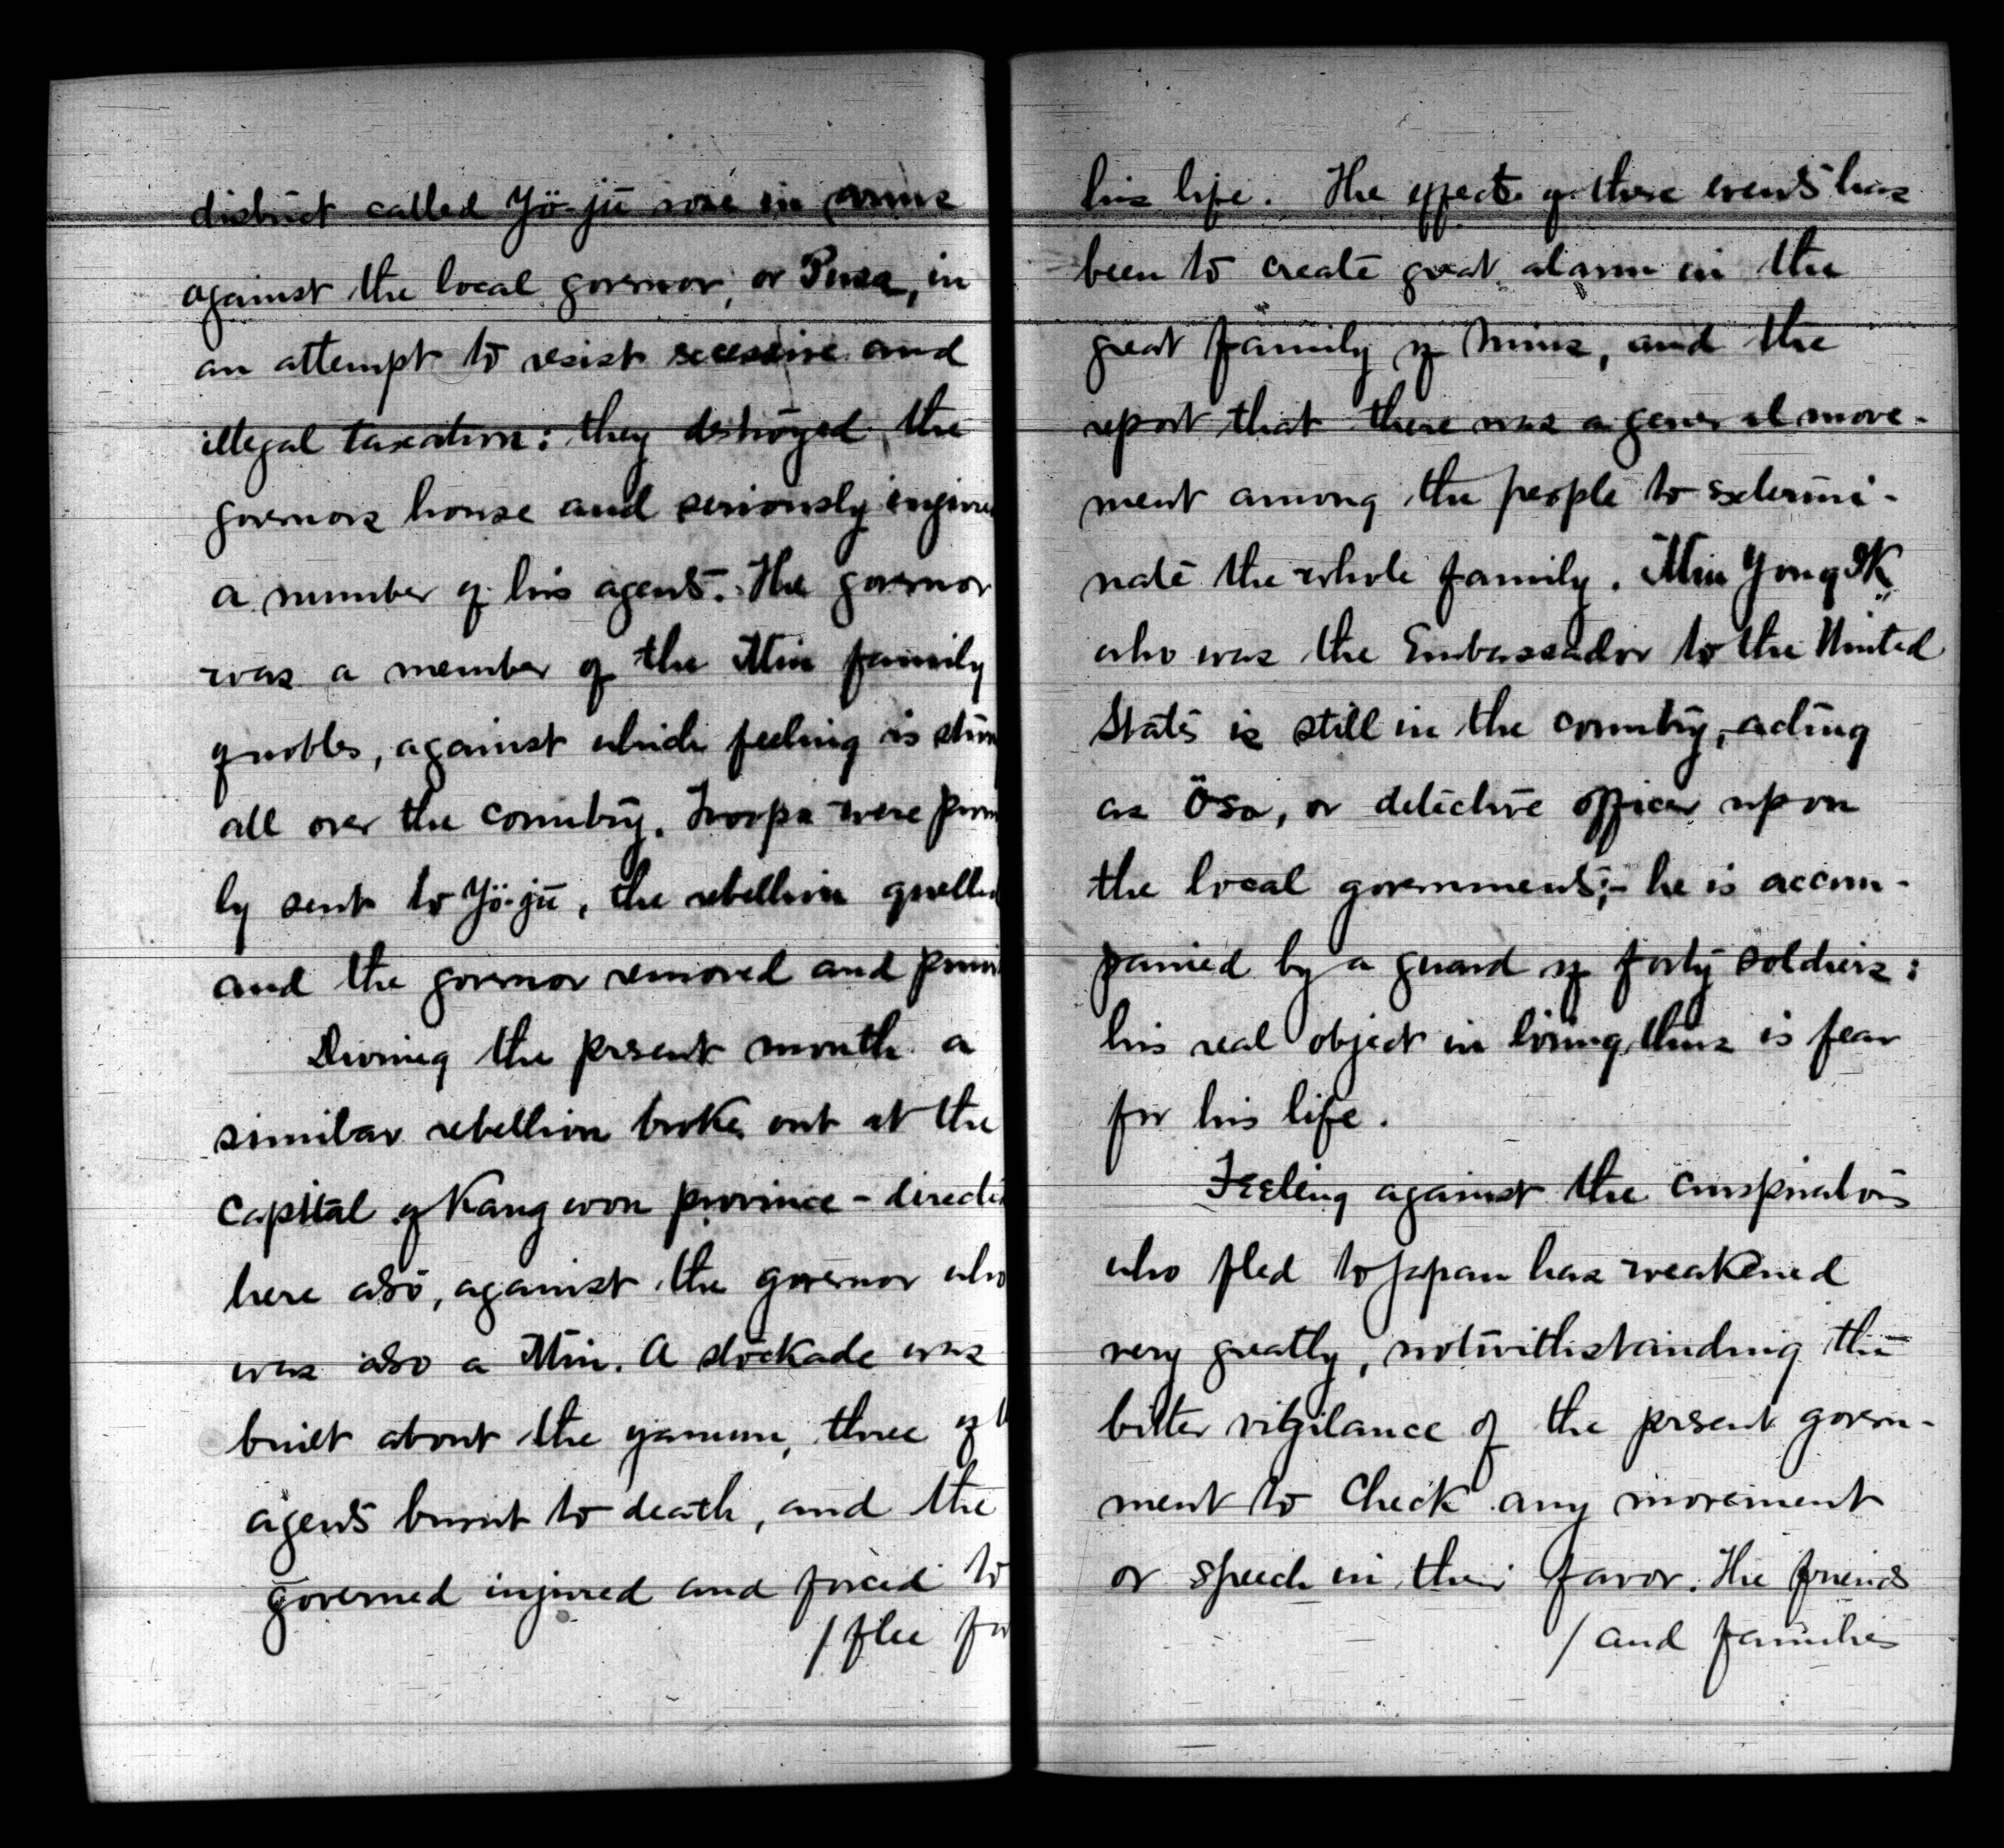 district called Yö-jü rose in arms
against the local governor, or Pusa, in
an attempt to resist excessive and
illegal taxation: they destroyed the
governors house and seriously injured
a number of his agents. The governor
was a member of the Min family
of nobles, against which feeling is stron
all over the country. Troops were prom
ly sent to Yö-jü, the rebellion quelled
and the governor removed and puni
During the present month a
similar rebellion broke out at the
Capital of Kang won province - directed
here also, against the governor who
was also a Min. A stockade was
built about the yamun, three of
agents burnt to death, and the
governed injured and forced to
/ flee for
his life. The effects of these events has
been to create great alarm in the
great family of Mins, and the
report that there was a general move-
ment among the people to extermi-
nate the whole family. Min Yong Ik
who was the Embassador to the United
States is still in the country, acting
as Ösa, or detective officer upon
the local governments;- he is accom-
panied by a guard of forty soldiers:
his real object in living thus is fear
for his life.
Feeling against the conspirators
who fled to Japan has weakened
very greatly, notwithstanding the
bitter vigilance of the present govern-
ment to check any movement
or speech in their favor. The friends
/ and families